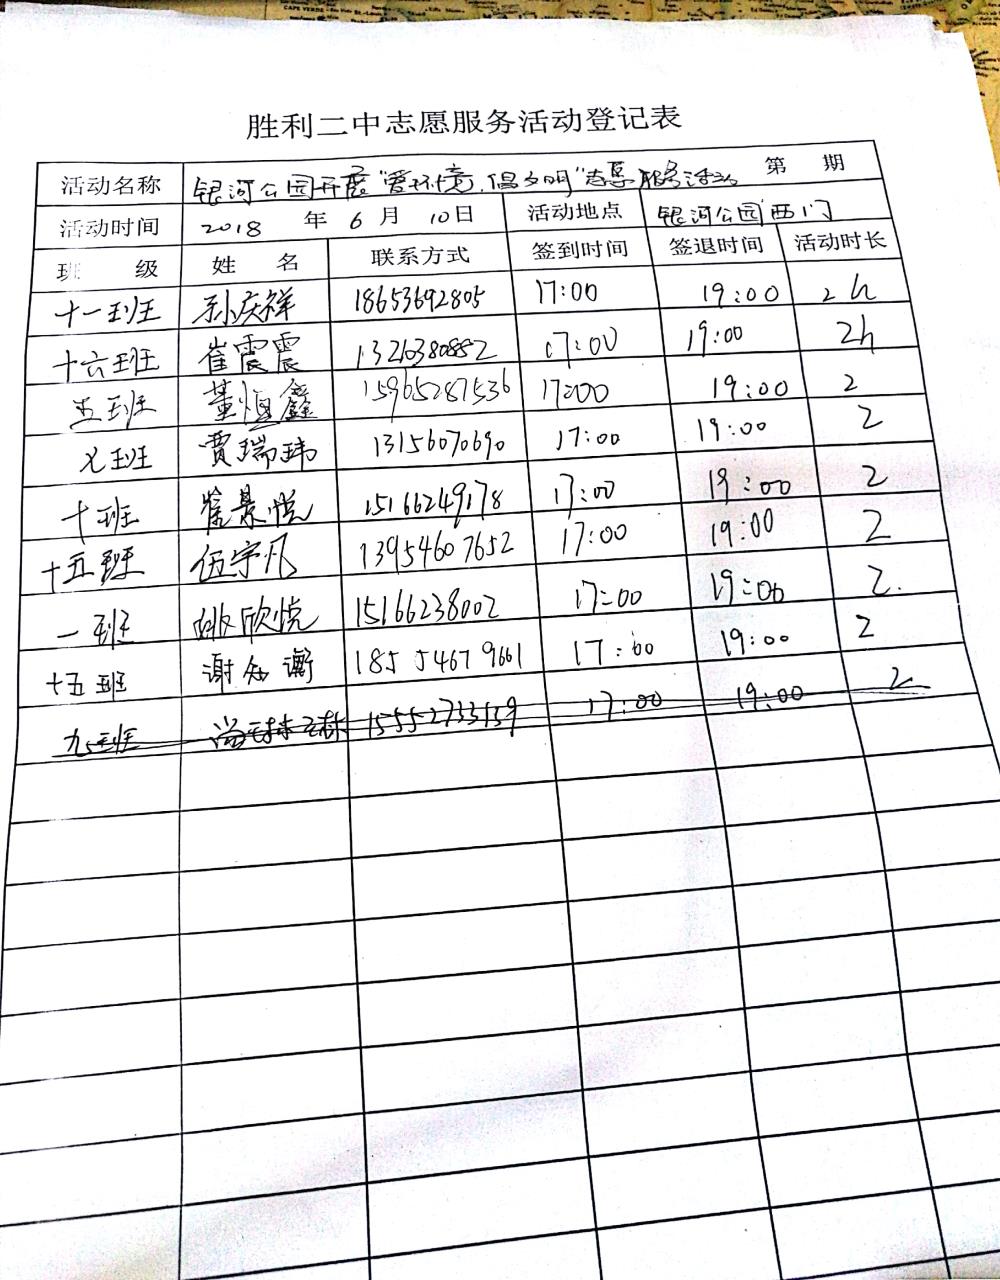 胜利二中志愿服务活动登记表
活动名称 银河公园开展"爱环境,倡文明"志愿服务活动 第 期
活动时间 2018 年 6 月 10日 活动地点 银河公园西门
班 级 姓 名 联系方式 签到时间 签退时间 活动时长
十一班 孙庆祥 18653692805 17:00 19:00 2h
十六班 崔震震 13210380852 17:00 19:00 2h
五班 董恒鑫 15965287536 17:00 19:00 2
七班 贾瑞玮 13156070690 17:00 19:00 2
十班 崔景悦 15166249178 17:00 19:00 2
十五班 伍宇凡 13954607652 17:00 19:00 2
一班 姚欣悦 15166238002 17:00 19:00 2.
十五班 谢知衡 18554679661 17:00 19:00 2
九班 15552733139 17:00 19:00 2